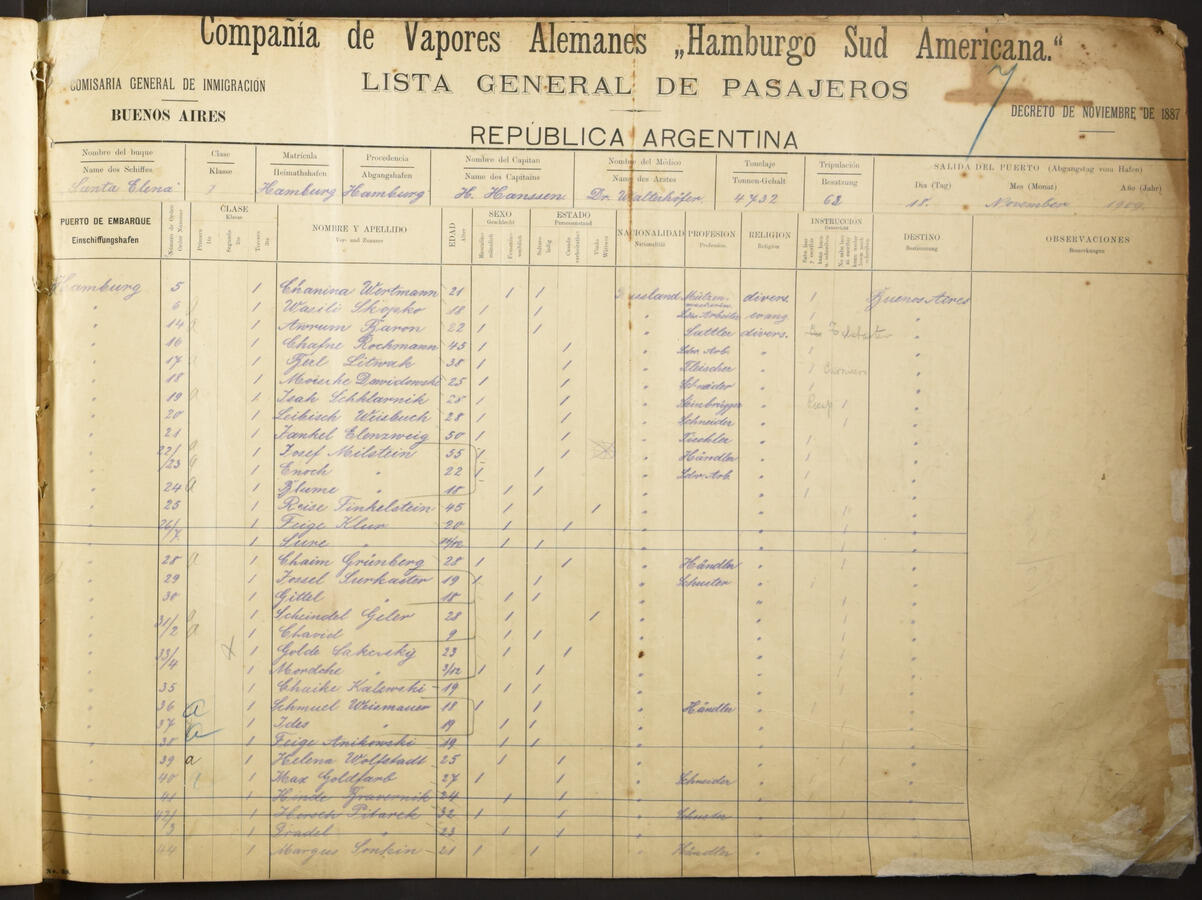 Compañía de Vapores Alemanes „Hamburgo Sud Americana.“
COMISARIA GENERAL DE INMIGRACIÓN
LISTA GENERAL DE PASAJEROS
7
BUENOS AIRES
DECRETO DE NOVIEMBRE DE 1887
REPÚBLICA ARGENTINA
Nombre del buque Clase Matrícula Procedencia Nombre del Capitan Nombre del Médico Tonelaje Tripulación SALIDA DEL PUERTO (Abgangstag vom Hafen)
Name des Schiffes Klasse Heimathshafen Abgangshafen Name des Capitains Name des Arztes Tonnen-Gehalt Besatzung Dia (Tag) Mes (Monat) Año (Jahr)
Santa Elena Hamburg Hamburg H. Hanssen Dr. Walterhöfer. 4732 62 18. November 1909.
PUERTO DE EMBARQUE CLASE NOMBRE Y APELLIDO EDAD SEXO ESTADO NACIONALIDAD PROFESION RELIGION INSTRUCCIÓN DESTINO OBSERVACIONES
Einschiffungshafen Klasse Vor- und Zuname Alter Geschlecht Personenstand Nationalität Profession Religion Unterricht Bestimmung Bemerkungen
Hamburg 5 1 Chanina Wortmann 21 1 1 Russland Mützen- divers. 1 Buenos Aires
" 6 1 Wasili Skopko 18 1 1 " Ldw. Arbeiter evang. 1 "
" 14 1 Awrum Baron 22 1 1 " Sattler divers. "
" 16 1 Chafne Rochmann 45 1 1 " Ldw. Arb. " 1 "
" 17 1 Berl Litwak 38 1 1 " Fleischer " 1 "
" 18 1 Moische Dawidowski 25 1 1 " Schneider " 1 "
" 19 1 Isah Schklarnik 28 1 1 " " 1 "
" 20 1 Leibisch Weisbuch 28 1 1 " Schneider " 1 "
" 21 1 Jankel Elenzweig 50 1 1 " Tischler " 1 "
" 22/ 1 Josef Milstein 55 1 1 " Händler " 1 "
" /23 1 Enoch " 22 1 1 " Ldw. Arb. " 1 "
" 24 a 1 Blume " 18 1 1 " " 1 "
" 25 1 Reise Finkelstein 45 1 1 " " 1 "
" 26/7 1 Feige Klur 20 1 1 " " 1 "
" 1 Sure " 11/12 1 1 " " "
" 28 a 1 Chaim Grünberg 28 1 1 " Händler " 1 "
" 29 1 Jossel Surkaster 19 1 1 " Schuster " 1 "
" 30 1 Gittel " 18 1 1 " " 1 "
" 31/2 1 Scheindel Geler 28 1 1 " " 1 "
" a 1 Chawid " 9 1 1 " " 1 "
" 33/4 1 Golde Sakersky 23 1 1 " " 1 "
" 1 Mordche " 3/12 1 1 " " "
" 35 1 Chaike Kalewski 19 1 1 " " 1 "
" 36 a 1 Schmuel Weismauer 18 1 1 " Händler " 1 "
" 37 a 1 Ides " 19 1 1 " " 1 "
" 38 1 Feige Anikowski 19 1 1 " " "
" 39 a 1 Helena Wolfstadt 25 1 1 " " "
" 40 a 1 Max Goldfarb 27 1 1 " Schneider " "
" 41 1 Hinde Bravernik 24 1 1 " " "
" 42/3 1 Hersch Pitarek 32 1 1 " Schuster " "
" 1 Fradel " 23 1 1 " " "
" 44 1 Margus Sonkin 21 1 1 " Händler " "